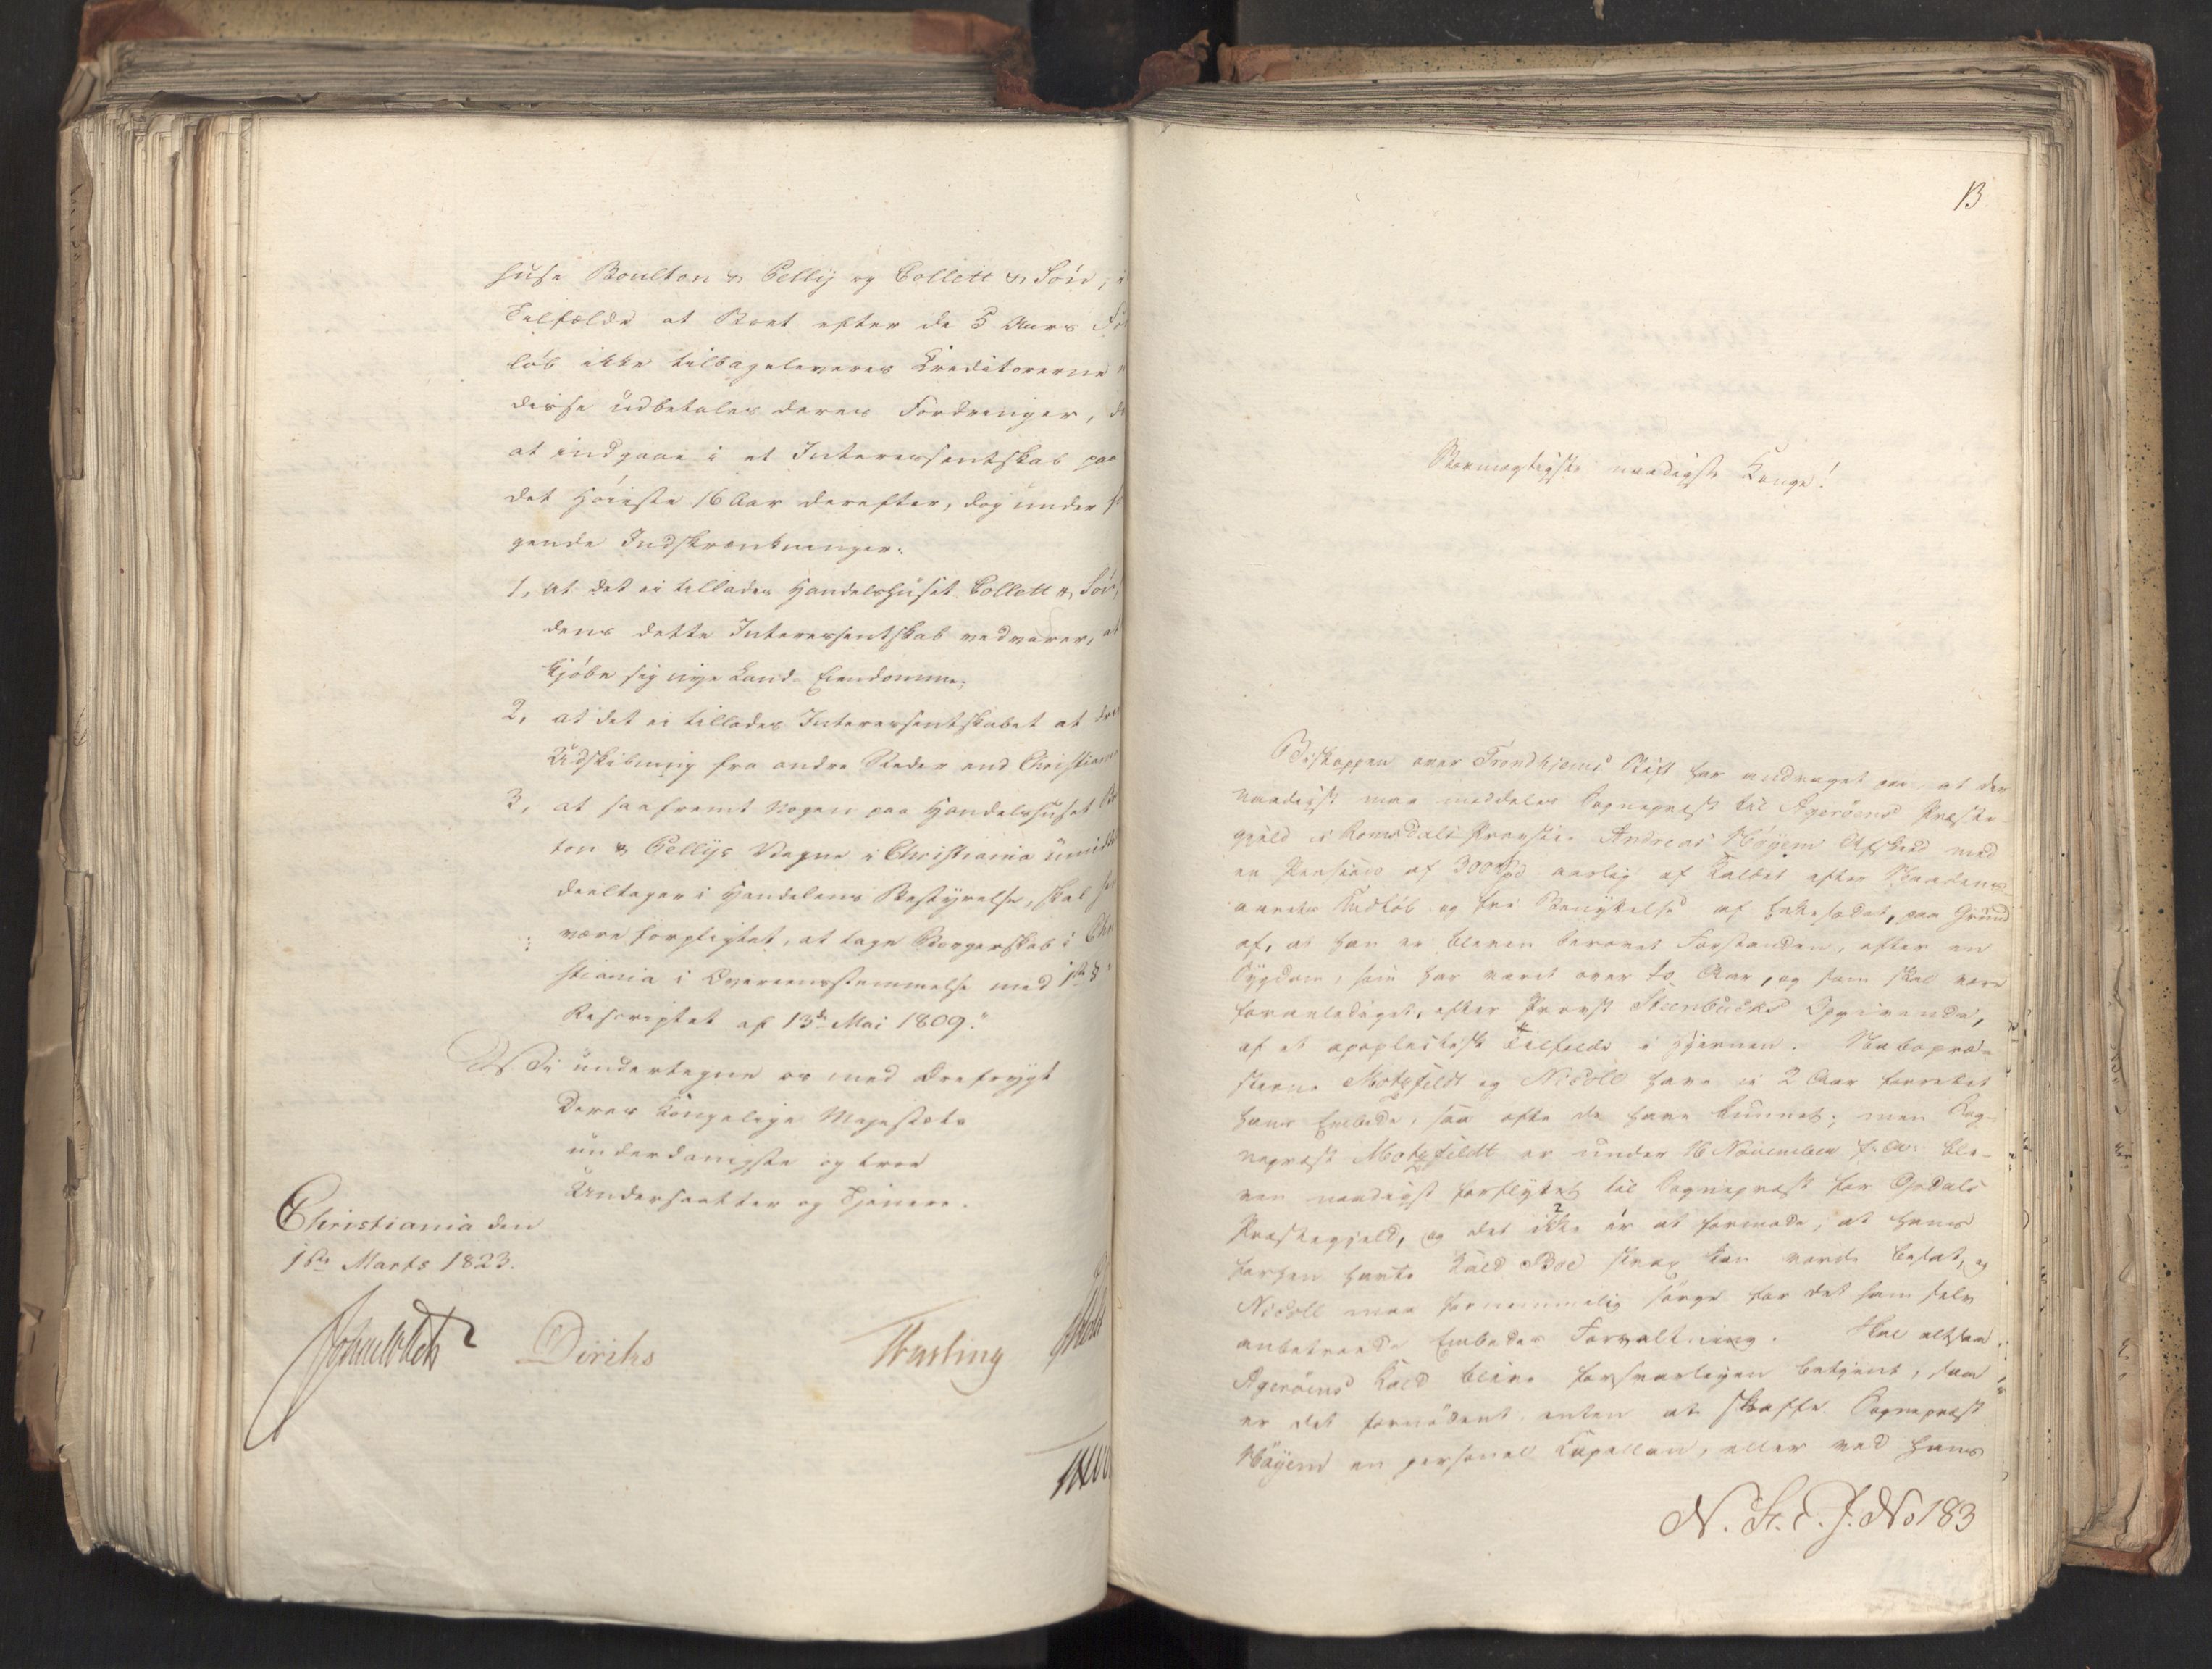 huse Boulton & Pelly og Collett & Søn, i
Tilfælde at Boet efter de 5 Aars
løb ikke tilbageleveres Kreditorerne
disse udbetales deres Fordringer,
at indgaae i et Interessentskab paa
det Høieste 16 Aar derefter, dog under
gende Indskrænkninger:
1, at det ei tillades Handelshuset Collett & Søn,
dens dette Interessentskab vedvarer, at
kjøbe sig nye Land-Eiendomme;
2, at det ei tillades Interessentskabet at
Udskibning fra andre Steder end Christian
3, at saafremt Nogen paa Handelshuset
ton & Pellys Vegne i Christiania umid
deeltager i Handelens Bestyrelse, skal
være forpligtet, at tage Borgerskab i Chr
stiania i Overeensstemmelse med
Rescriptet af 13de Mai 1809."
Vi undertegne os med Ærefrygt
Deres Kongelige Majestæts
underdanigste og troe
Undersaatter og Tjenere.
Christiania den
1ste Marts 1823.
JCollett Diriks Krefting
13
Stormægtigste naadigste Konge!
Biskoppen over Trondhjems Stift har andraget paa, at der
naadigst maa meddeles Sognepræst til Agerøens Præste-
gjeld i Romsdals Provstie Andreas Høyem Afsked med
en Pension af 300 Spd aarlig af Kaldet efter Naadens
aarets Indløb og fri Benyttelse af Enkesædet, paa Grund
af, at han er bleven berøvet Forstanden, efter en
Sygdom, som har varet over to Aar, og som skal være
foranlediget, efter Provst Steenbucks Opgivende,
af et apoplectisk Tilfælde i Hjernen. Nabopræ-
sterne Motzfeldt og Nicoll have i 2 Aar forrettet
hans Embede, saa ofte de have kunnet; men Sog-
nepræst Motzfeldt er under 16 November f. A. ble-
ven naadigst forflyttet til Sognepræst for Opdals
Præstegjeld, og det ikke er at formode, at hans
forhen havte Kald Boe strax kan vorde besat, og
Nicoll maa fornemmelig sørge for det ham selv
anbetroede Embedes Forvaltning. Skal altsaa
Agerøens Kald blive forsvarligen betjent, saa
er det fornødent, enten at skaffe Sognepræst
Høyem en personel Kapellan, eller ved hans
N. St. E. J. No 183